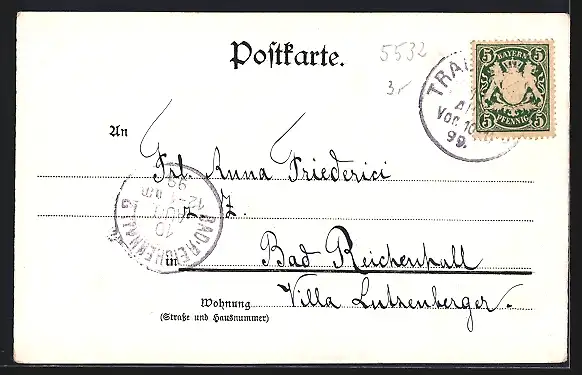 Postkarte.
5532
3.-
BAYERN
5 5
5 5
PFENNIG
TRA
Vor. 10
99.
An
Frl. Anna Friederici
z. Z.
BAD REICHENHALL
10
AUG
12
99
in Bad Reichenhall
Wohnung Villa Lutzenberger.
(Straße und Hausnummer)